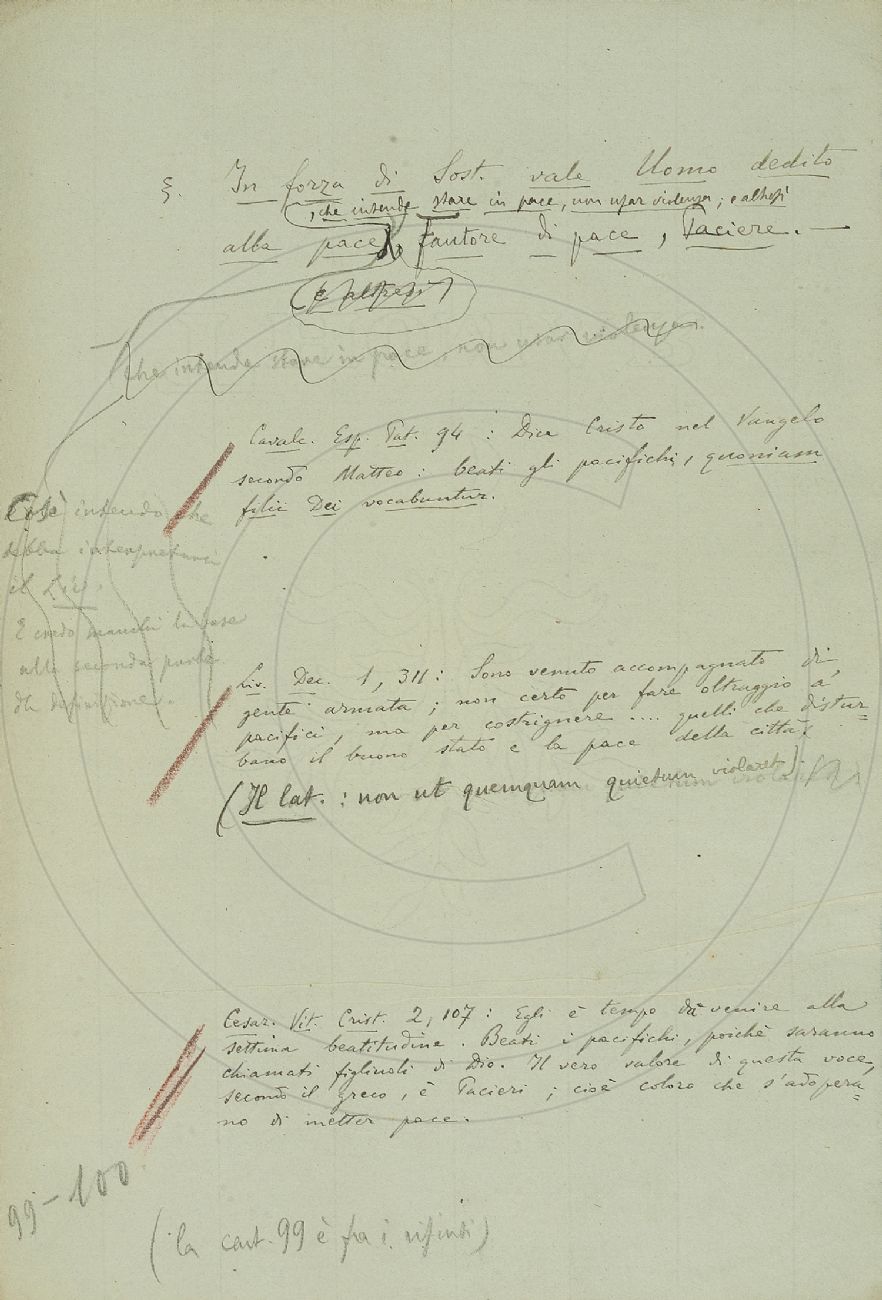 ξ. In forza di Sost. vale Uomo dedito
, che intende stare in pace, non usar violenza; e altresì
alla pace, Fautore di pace, Paciere. —
(e altresì)
che intende stare in pace, non usar violenza.
Cavalc. Esp. Pat. 94 : Dice Cristo nel Vangelo
secondo Matteo : beati gli pacifichi, quoniam
filii Dei vocabuntur.
Così intendo che
debba interpretarsi
il Liv.
E credo manchi la base
alla seconda parte
di definizione.
Liv. Dec. 1, 311 : Sono venuto accompagnato di
gente armata ; non certo per fare oltraggio a'
pacifici, ma per costrignere .... quelli che distur=
bano il buono stato e la pace della città.
(Il lat. : non ut quemquam quietum violaret).
Cesar. Vit. Crist. 2, 107 : Egli è tempo da venire alla
settima beatitudine. Beati i pacifichi, poichè saranno
chiamati figliuoli di Dio. Il vero valore di questa voce,
secondo il greco, è Pacieri ; cioè coloro che s'adopera=
no di metter pace.
99-100
(la cart. 99 è fra i rifiuti)